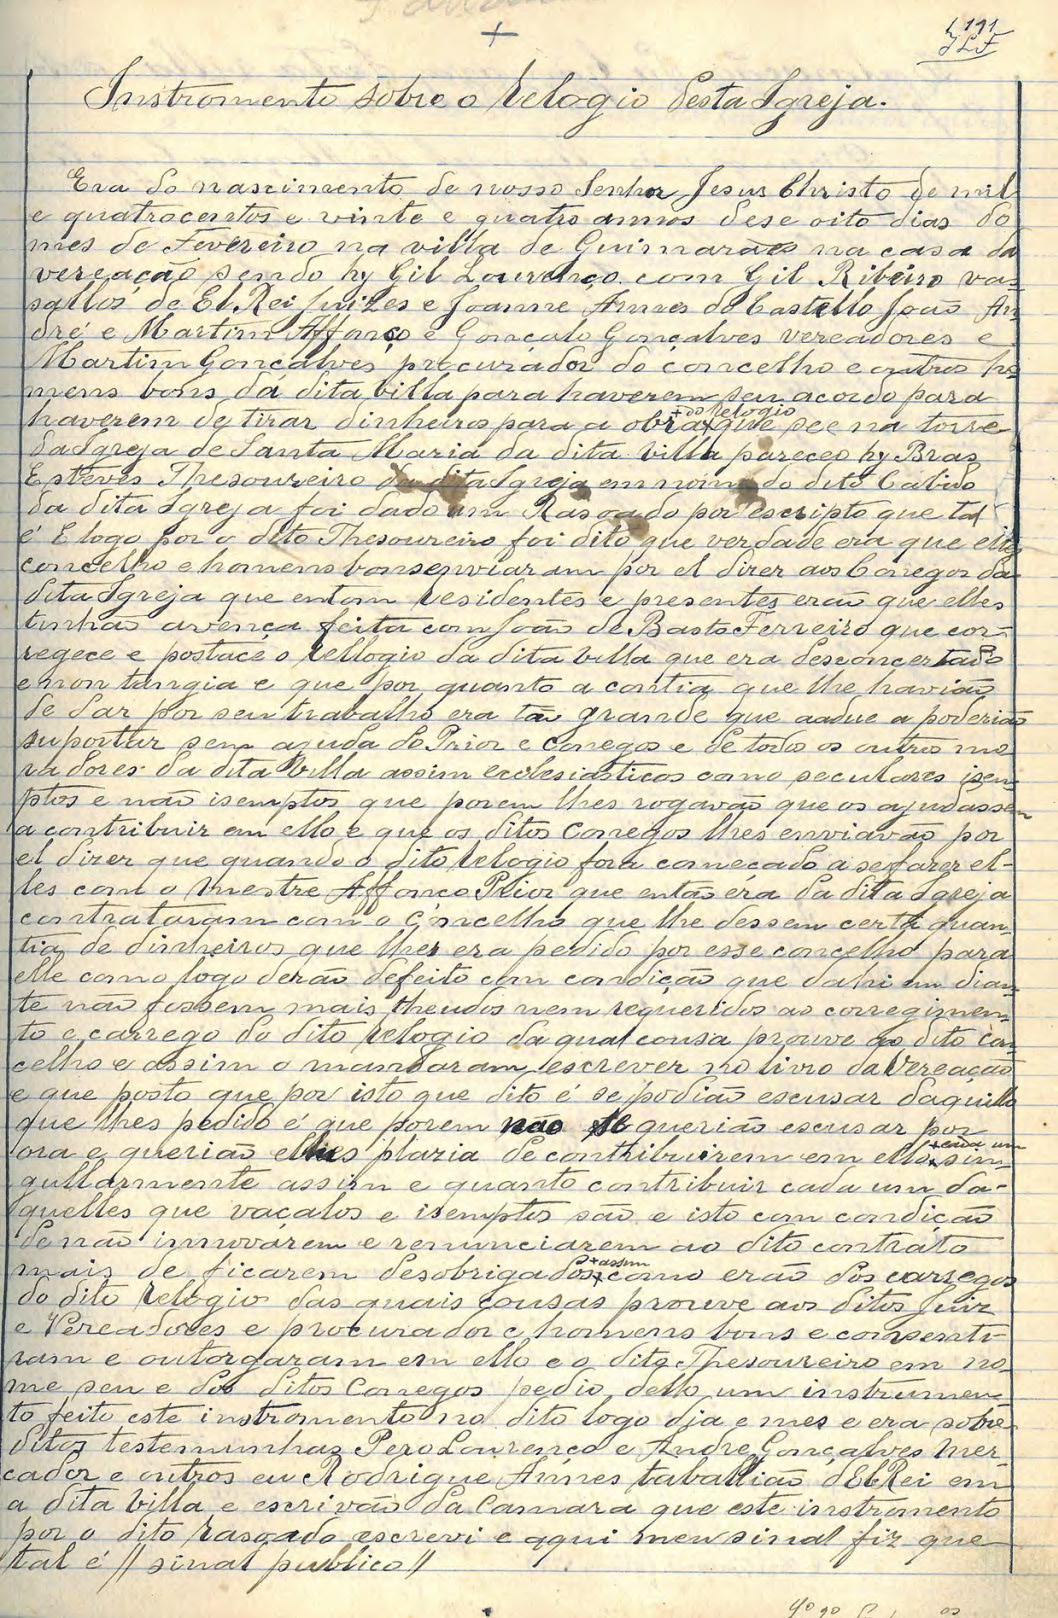 +
191
JLF
Instromento sobre o relogio desta Igreja.
Era do nascimento de nosso Senhor Jesus Christo de mil
e quatrocentos e vinte e quatro annos dese oito dias do
mes de Fevereiro na villa de Guimarães na casa da
vereação sendo hy Gil Lourenço com Gil Ribeiro va-
sallos de El Rei juizes e Joanne Annes do Castello João An
dré e Martim Affonço e Gonçalo Gonçalves vereadores e
Martim Gonçalves procurador do concelho e outros ho
mens bons da dita villa para haverem seu acordo para
+ do relogio
haverem de tirar dinheiros para a obra + que see na torre
da Igreja de Santa Maria da dita villa pareceo hy Bras
Esteves Thesoureiro da dita Igreja em nome do dito Cabido
da dita Igreja foi dado um Rasoado por escripto que tal
é E logo por o dito Thesoureiro foi dito que verdade era que elles
concelho e homens bons enviaram por el dizer aos Conegos da
dita Igreja que entom residentes e presentes erão que elles
tinhão avença feita com João de Basto Ferreiro que cor-
regece e postace o rellogio da dita villa que era desconcertado
e non tangia e que por quanto a contia que lhe havião
de dar por seu trabalho era tã grande que a poderião
suportar sem ajuda do Prior e conegos e de todos os outros mo
radores da dita villa assim ecclesiasticos como seculares isem
ptos e não isemptos que porem lhes rogavão que os ajudassem
a contribuir em ello e que os ditos conegos lhes enviavão por
el dizer que quando o dito relogio fora começado a se fazer el-
les com o mestre Affonço Prior que então era da dita Igreja
contrataram com o concelho que lhe dessem certa quan
tia de dinheiros que lhes era pedido por esse concelho para
elle como logo derão defeito com condição que dahi em dian
te não fossem mais theudos nem requeridos ao corregimen
to e carrego do dito relogio da qual cousa prouve ao dito con
celho e assim o mandaram escrever no livro da Vereação
e que posto que por isto que dito é se podião escusar daquillo
que lhes pedido é que porem não se querião escusar por
+ cada um
ora e querião e lhes plazia de contribuirem em ello + sin
gullarmente assim e quanto contribuir cada um da-
quelles que vaçalos e isemptos são e isto com condição
de não innovarem e renunciarem ao dito contrato
+ assim
mais de ficarem desobrigados + como erão dos carregos
do dito relogio das quais cousas prouve aos ditos Juiz
e Vereadores e procurador e homens bons e consenti
ram e outorgaram em ello e o dito Thesoureiro em no
me seu e dos ditos Conegos pedio dello um instrumen
to feito este instromento no dito logo dia e mes e era sobre
ditos testemunhas Pero Lourenço e Andre Gonçalves mer
cador e outros eu Rodrigue Annes taballião d'El Rei em
a dita villa e escrivão da camara que este instromento
por o dito rasoado escrevi e aqui meu sinal fiz que
tal é // sinal publico //